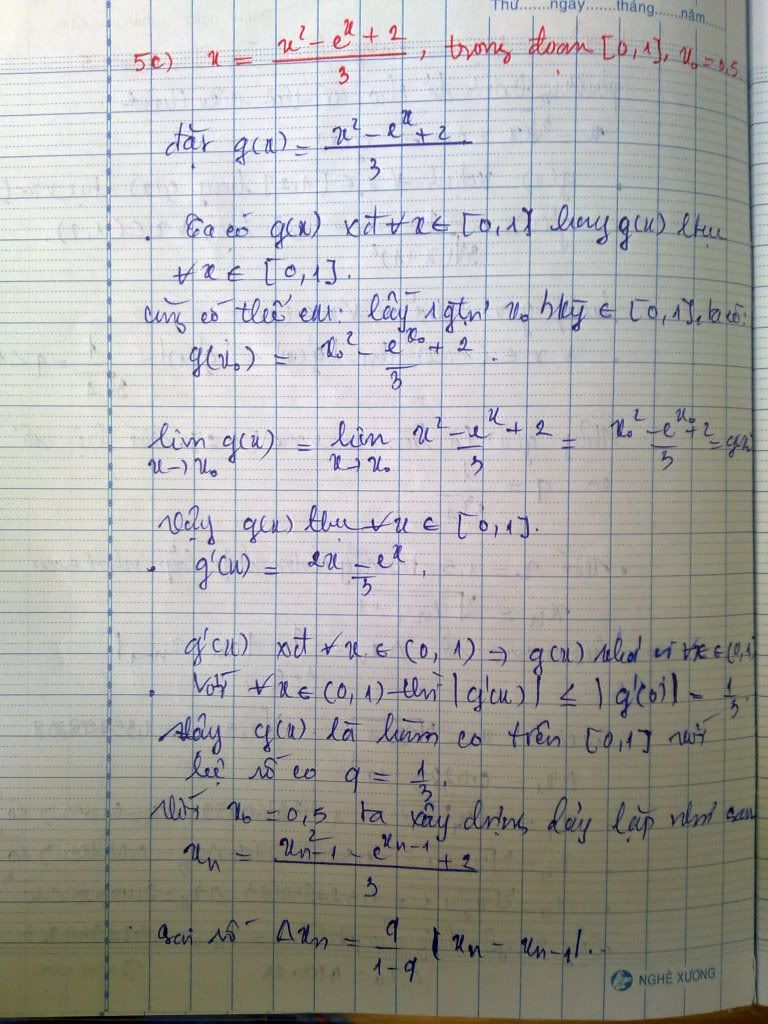 Thứ.......ngày.......tháng.......năm.......
5c) x = (x² - eˣ + 2)/3, trong đoạn [0,1], x₀ = 0,5
đặt g(x) = (x² - eˣ + 2)/3
. Ta có g(x) xđ ∀x ∈ [0,1] hay g(x) ltục
∀x ∈ [0,1].
cũng có thể cm: lấy 1 gtrị x₀ bkỳ ∈ [0,1], ta có:
g(x₀) = (x₀² - eˣ⁰ + 2)/3.
lim x→x₀ g(x) = lim x→x₀ (x² - eˣ + 2)/3 = (x₀² - eˣ + 2)/3 = g(x
Vậy g(x) ltục ∀x ∈ [0,1].
. g'(x) = (2x - eˣ)/3.
g'(x) xđ ∀x ∈ (0,1) ⇒ g(x) ∀x ∈ (0,1
. Với ∀x ∈ (0,1) thì |g'(x)| ≤ |g'(0)| = 1/3.
Vậy g(x) là hàm co trên [0,1] với
hệ số co q = 1/3.
Với x₀ = 0,5 ta xây dựng dãy lặp như sau
xₙ = (xₙ₋₁² - e^(xₙ₋₁) + 2)/3
. sai số Δxₙ = q/(1-q) |xₙ - xₙ₋₁|...
NGHỆ XƯƠNG